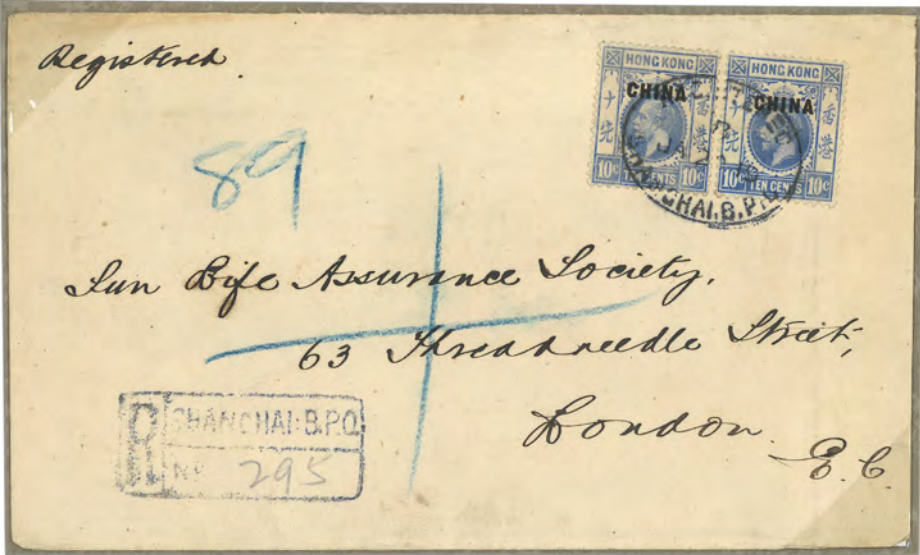 Registered.
HONG KONG
CHINA
十先
香港
10c TEN CENTS 10c
HONG KONG
CHINA
十先
香港
10c TEN CENTS 10c
REGISTERED
SHANGHAI.B.P.O.
89
Sun Life Assurance Society,
63 Threadneedle Street,
London.
E.C.
R
SHANGHAI: B.P.O.
No 295